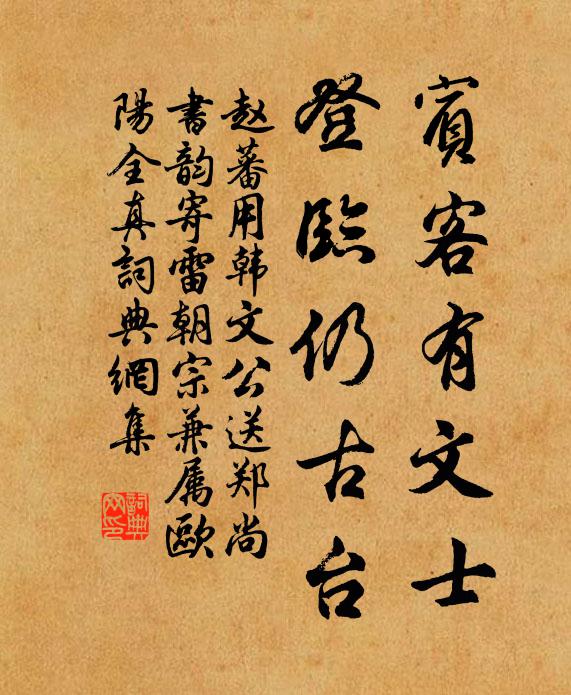 賓客有文士
登臨仍古台
赵蕃用韩文公送郑尚
書韵寄雷朝宗兼属歐
陽全真詞典網集
詞典
网印